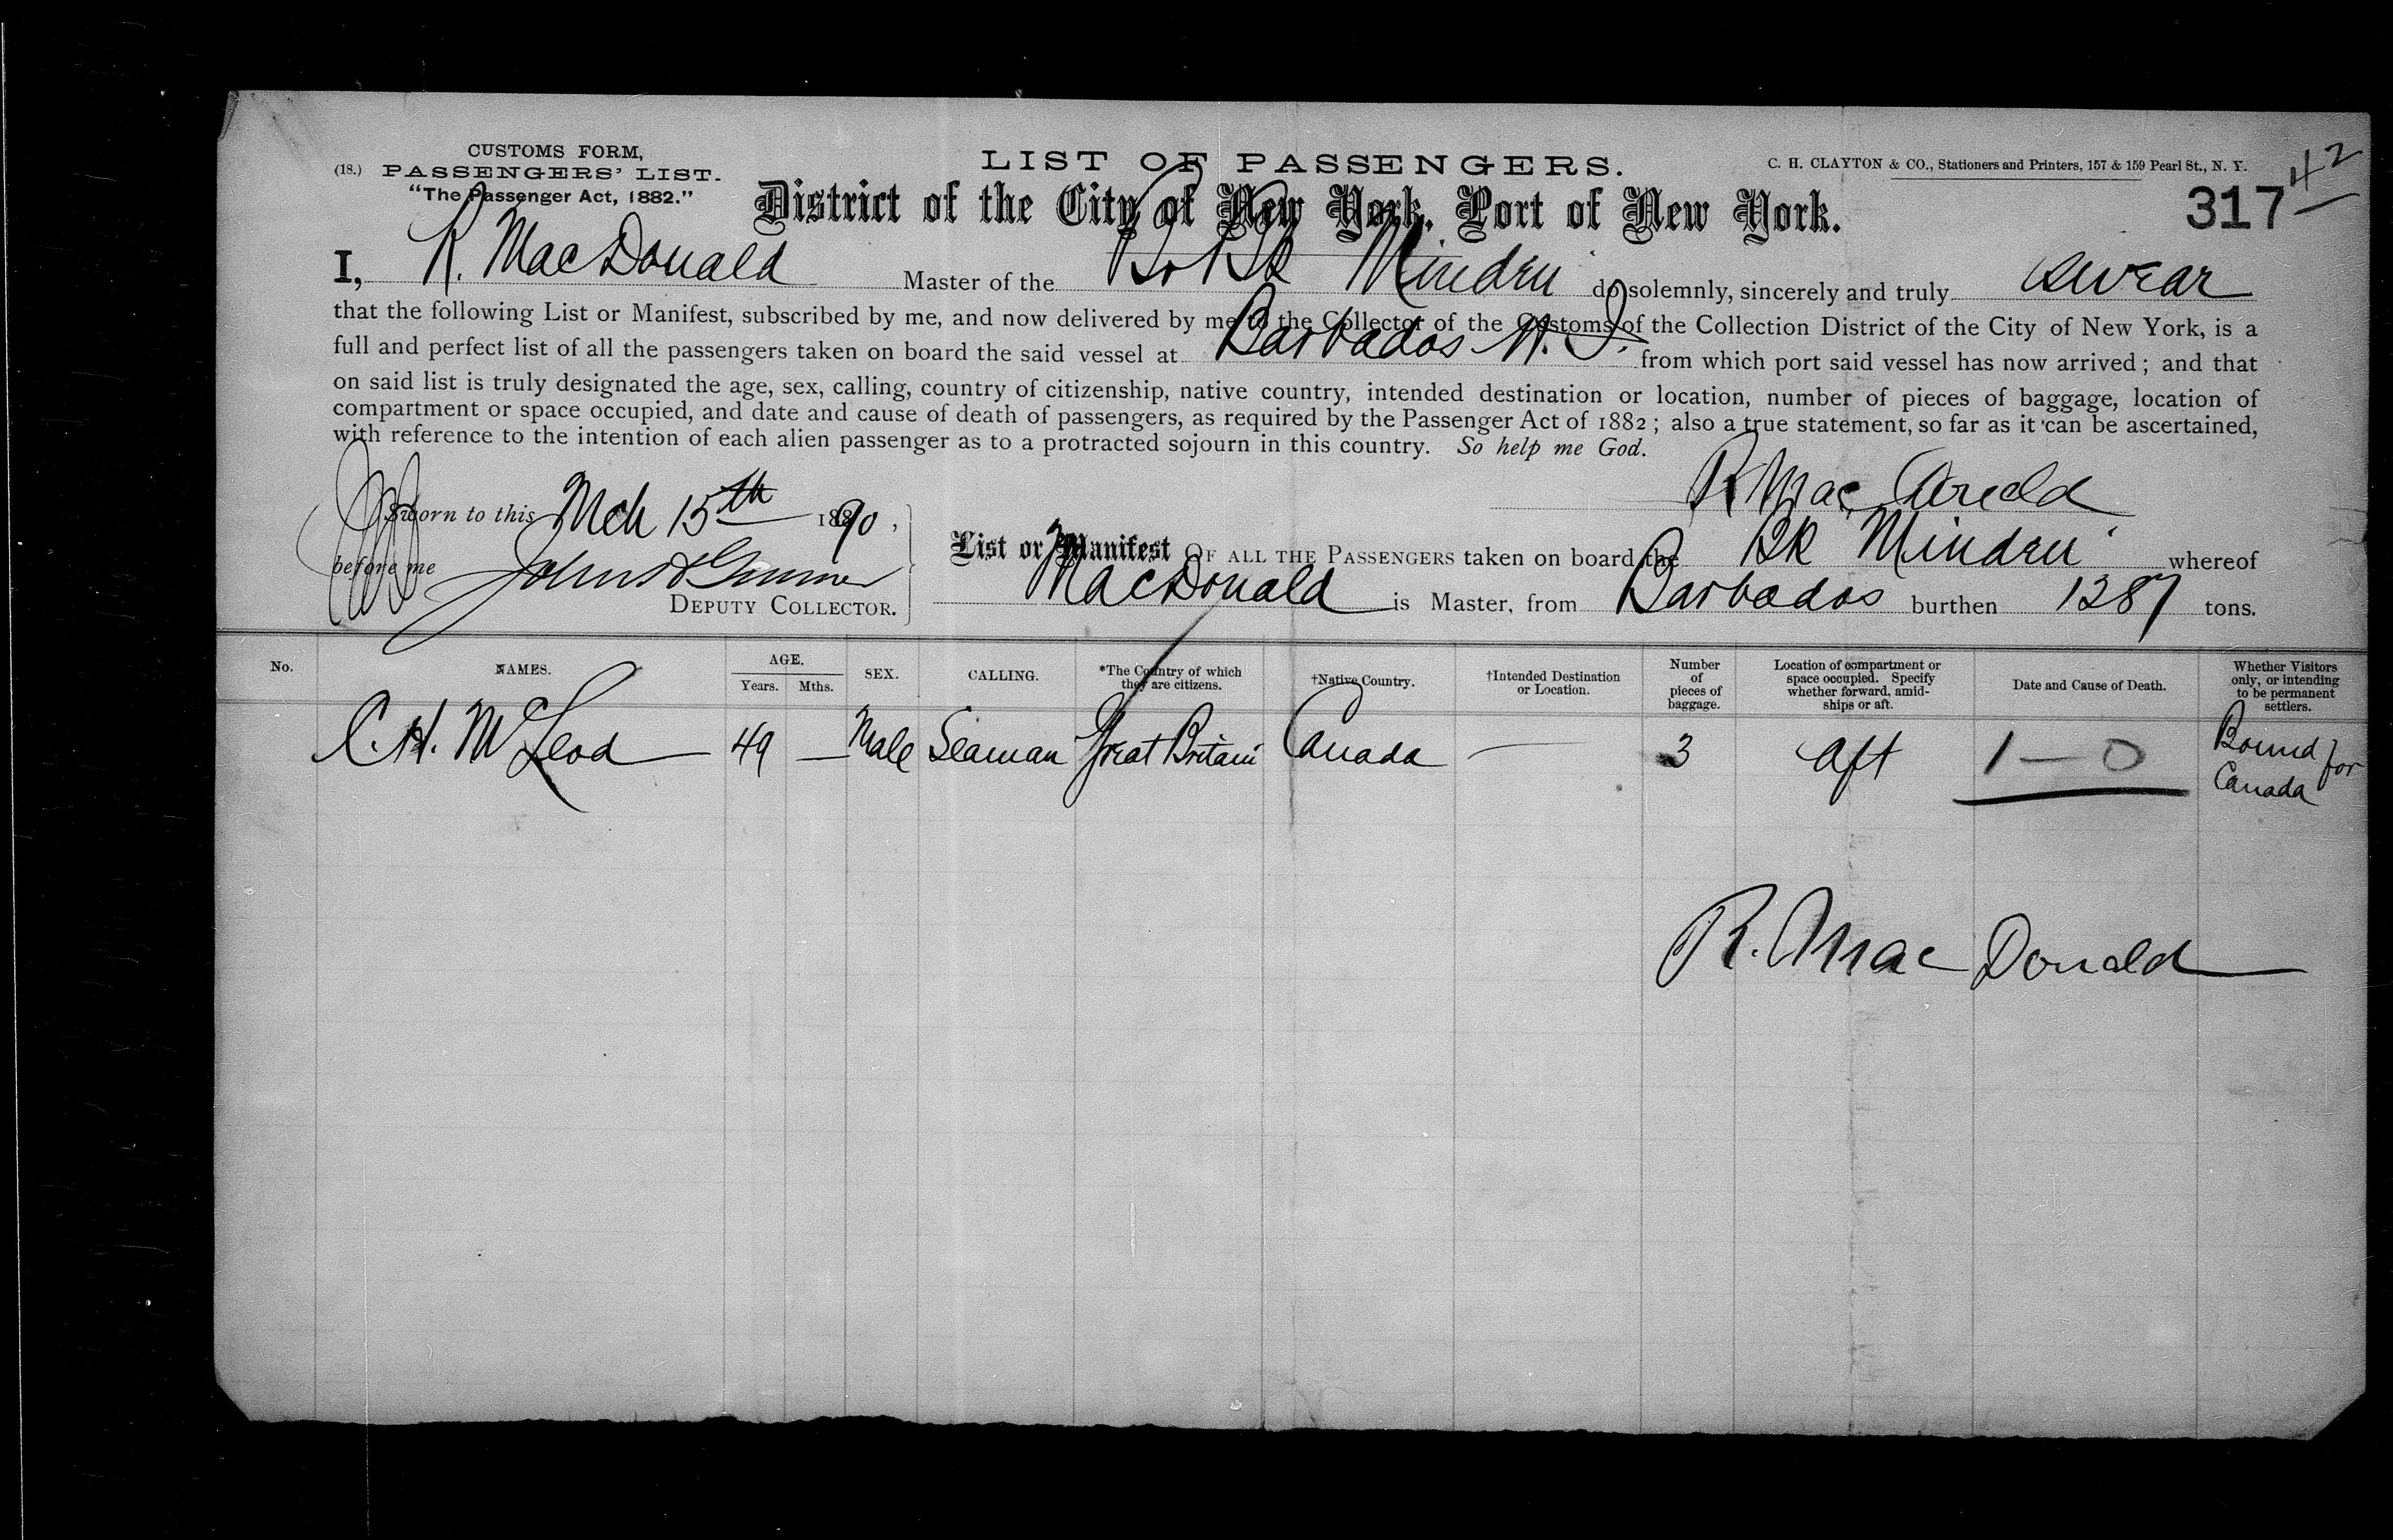 CUSTOMS FORM,
(18.) PASSENGERS' LIST.
"The Passenger Act, 1882."
LIST OF PASSENGERS.
C. H. CLAYTON & CO., Stationers and Printers, 157 & 159 Pearl St., N. Y.
42
317
District of the City of New York, Port of New York.
I, R. MacDonald Master of the Br Bk Mindru do solemnly, sincerely and truly swear
that the following List or Manifest, subscribed by me, and now delivered by me to the Collector of the Customs of the Collection District of the City of New York, is a
full and perfect list of all the passengers taken on board the said vessel at Barbados W. I. from which port said vessel has now arrived; and that
on said list is truly designated the age, sex, calling, country of citizenship, native country, intended destination or location, number of pieces of baggage, location of
compartment or space occupied, and date and cause of death of passengers, as required by the Passenger Act of 1882; also a true statement, so far as it can be ascertained,
with reference to the intention of each alien passenger as to a protracted sojourn in this country. So help me God.
R Mac Donald
Sworn to this Mch 15th 1890,
before me
DEPUTY COLLECTOR.
List or Manifest OF ALL THE PASSENGERS taken on board the Bk Mindru whereof
MacDonald is Master, from Barbados burthen 1287 tons.
No. NAMES. AGE. Years. Mths. SEX. CALLING. *The Country of which they are citizens. †Native Country. †Intended Destination or Location. Number of pieces of baggage. Location of compartment or space occupied. Specify whether forward, amidships or aft. Date and Cause of Death. Whether Visitors only, or intending to be permanent settlers.
C. H. McLeod 49 — Male Seaman Great Britain Canada — 3 aft 1 — 0 Bound for Canada
R. Mac Donald